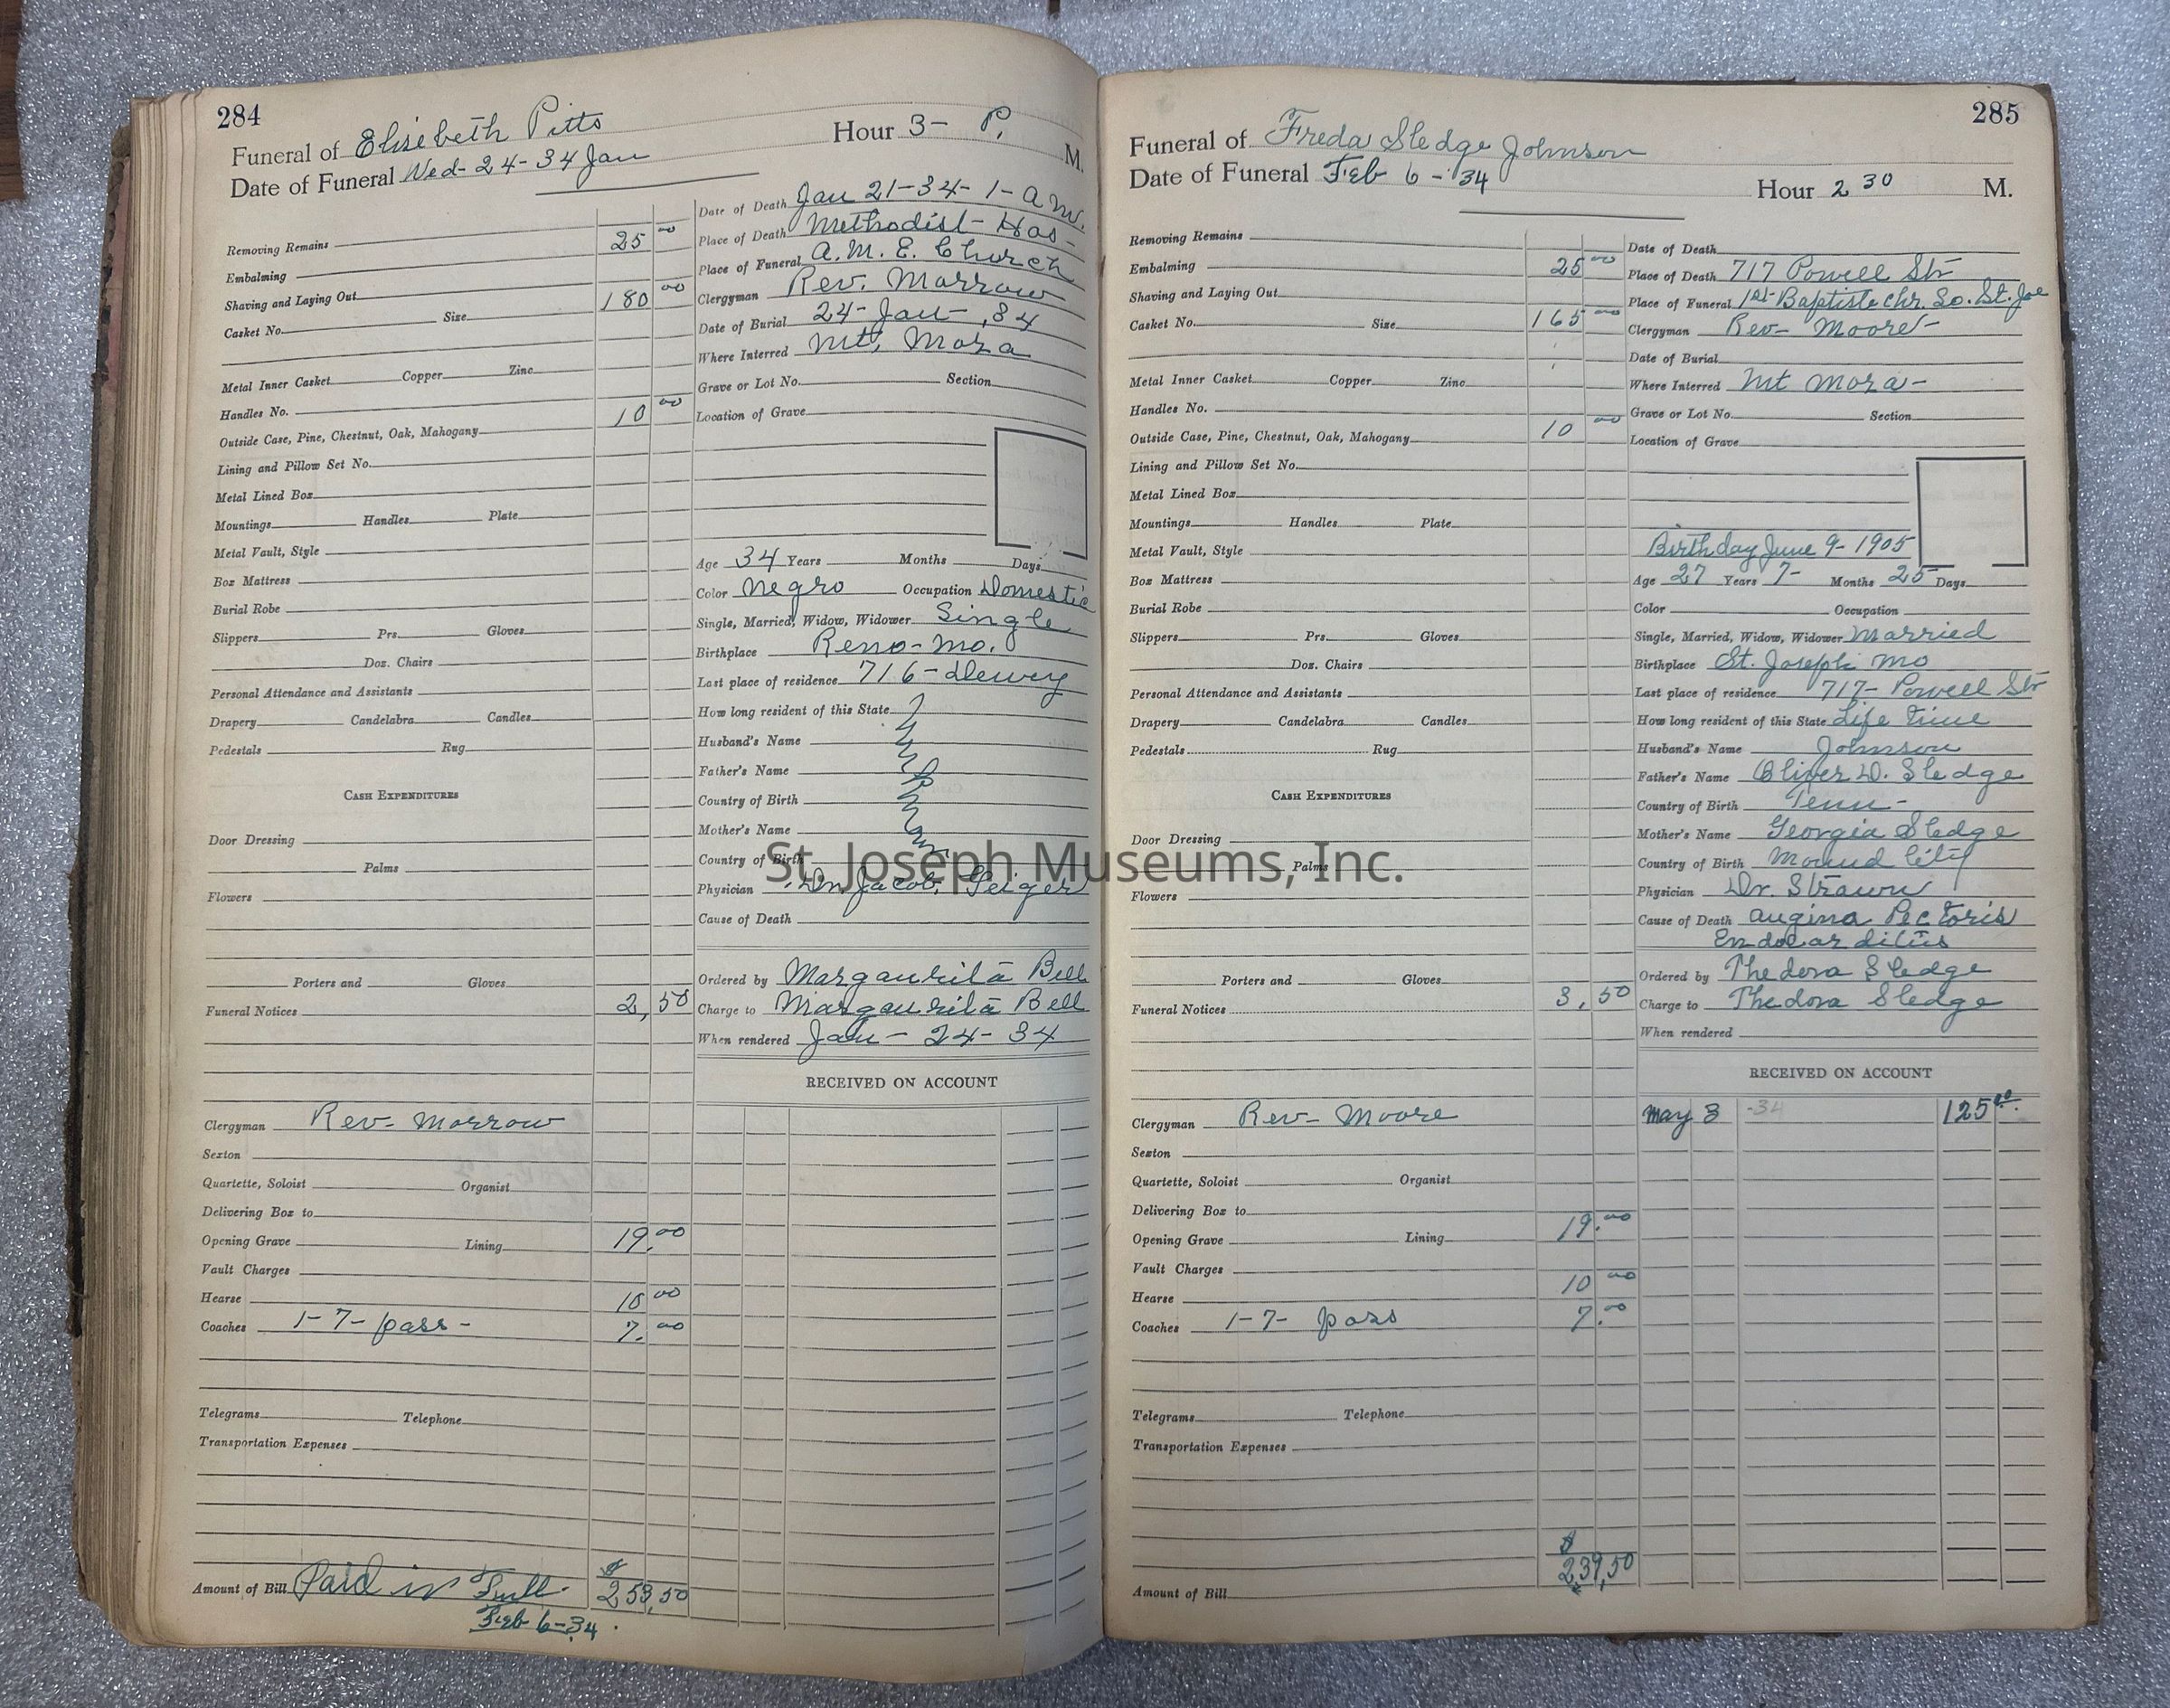 284
Funeral of Elisebeth Pitts Hour 3- P. M.
Date of Funeral Wed- 24-34 Jan
Removing Remains
Embalming 25 00
Shaving and Laying Out
Casket No. Size 180 00
Metal Inner Casket Copper Zinc
Handles No.
Outside Case, Pine, Chestnut, Oak, Mahogany 10 00
Lining and Pillow Set No.
Metal Lined Box
Mountings Handles Plate
Metal Vault, Style
Box Mattress
Burial Robe
Slippers Prs. Gloves
Doz. Chairs
Personal Attendance and Assistants
Drapery Candelabra Candles
Pedestals Rug
CASH EXPENDITURES
Door Dressing
Palms
Flowers
Porters and Gloves
Funeral Notices 2,50
Clergyman Rev- Morrow
Sexton
Quartette, Soloist Organist
Delivering Box to
Opening Grave Lining 19.00
Vault Charges
Hearse 10 00
Coaches 1-7-pass- 7.00
Telegrams Telephone
Transportation Expenses
Amount of Bill Paid in Full $ 253,50
Feb 6-34.
Date of Death Jan 21-34- 1- a.m.
Place of Death Methodist- Hos-
Place of Funeral A.M.E. Church
Clergyman Rev. Morrow
Date of Burial 24- Jan- ,34
Where Interred Mt, Mora
Grave or Lot No. Section
Location of Grave
Age 34 Years Months Days
Color Negro Occupation Domestic
Single, Married, Widow, Widower Single
Birthplace Reno- Mo.
Last place of residence 716- Dewey
How long resident of this State
Husband's Name
Father's Name
Country of Birth
Mother's Name
Country of Birth
Physician Dr. Jacob Geiger
Cause of Death
Ordered by Margaurita Bell
Charge to Margaurita Bell
When rendered Jan- 24- 34
RECEIVED ON ACCOUNT
285
Funeral of Freda Sledge Johnson
Date of Funeral Feb 6-'34 Hour 2 30 M.
Removing Remains
Embalming 25 00
Shaving and Laying Out
Casket No. Size 165 00
Metal Inner Casket Copper Zinc
Handles No.
Outside Case, Pine, Chestnut, Oak, Mahogany 10 00
Lining and Pillow Set No.
Metal Lined Box
Mountings Handles Plate
Metal Vault, Style
Box Mattress
Burial Robe
Slippers Prs. Gloves
Doz. Chairs
Personal Attendance and Assistants
Drapery Candelabra Candles
Pedestals Rug
CASH EXPENDITURES
Door Dressing
Palms
Flowers
Porters and Gloves
Funeral Notices 3,50
Clergyman Rev- Moore
Sexton
Quartette, Soloist Organist
Delivering Box to
Opening Grave Lining 19.00
Vault Charges
Hearse 10 00
Coaches 1-7- pass 7.00
Telegrams Telephone
Transportation Expenses
Amount of Bill $ 239,50
Date of Death
Place of Death 717 Powell Str
Place of Funeral 1st Baptiste Chr. So. St. Joe
Clergyman Rev- Moore-
Date of Burial
Where Interred Mt Mora-
Grave or Lot No. Section
Location of Grave
Birthday June 9-1905
Age 27 Years 7- Months 25 Days
Color Occupation
Single, Married, Widow, Widower Married
Birthplace St. Joseph Mo
Last place of residence 717- Powell Str
How long resident of this State Life Time
Husband's Name Johnson
Father's Name Oliver D. Sledge
Country of Birth Tenn-
Mother's Name Georgia Sledge
Country of Birth Mound City
Physician Dr. Strawn
Cause of Death Angina Pectoris
Endocarditus
Ordered by Thedora Sledge
Charge to Thedora Sledge
When rendered
RECEIVED ON ACCOUNT
May 3 -34 125 00
St. Joseph Museums, Inc.